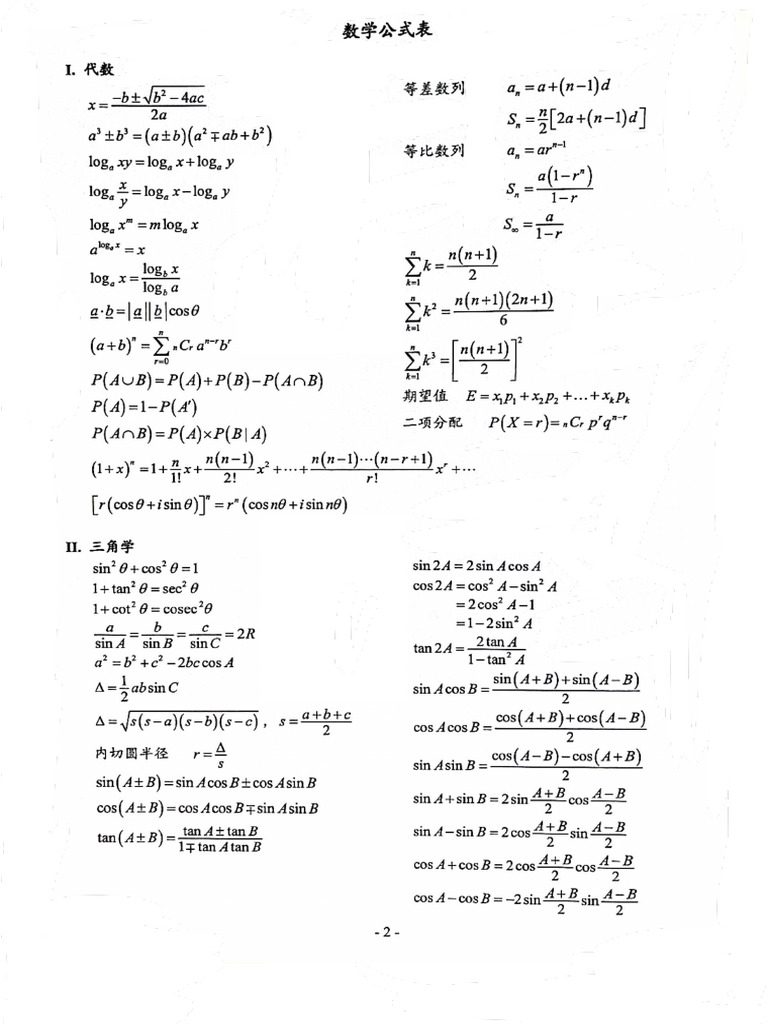 数学公式表
I. 代数
x = (-b ± √(b² - 4ac)) / 2a
a³ ± b³ = (a ± b)(a² ∓ ab + b²)
logₐ xy = logₐ x + logₐ y
logₐ x/y = logₐ x - logₐ y
logₐ xᵐ = m logₐ x
a^(logₐ x) = x
logₐ x = log_b x / log_b a
a·b = |a||b|cosθ
(a+b)ⁿ = Σ_{r=0}^{n} ₙCᵣ aⁿ⁻ʳbʳ
P(A∪B) = P(A) + P(B) - P(A∩B)
P(A) = 1 - P(A′)
P(A∩B) = P(A) × P(B|A)
等差数列 aₙ = a + (n-1)d
Sₙ = n/2 [2a + (n-1)d]
等比数列 aₙ = arⁿ⁻¹
Sₙ = a(1-rⁿ) / (1-r)
S∞ = a / (1-r)
Σ_{k=1}^{n} k = n(n+1) / 2
Σ_{k=1}^{n} k² = n(n+1)(2n+1) / 6
Σ_{k=1}^{n} k³ = [n(n+1) / 2]²
期望值 E = x₁p₁ + x₂p₂ + ... + xₖpₖ
二项分配 P(X = r) = ₙCᵣ pʳqⁿ⁻ʳ
(1+x)ⁿ = 1 + n/1! x + n(n-1)/2! x² + ··· + n(n-1)···(n-r+1)/r! xʳ + ···
[r(cosθ + i sinθ)]ⁿ = rⁿ(cos nθ + i sin nθ)
II. 三角学
sin²θ + cos²θ = 1
1 + tan²θ = sec²θ
1 + cot²θ = cosec²θ
a/sin A = b/sin B = c/sin C = 2R
a² = b² + c² - 2bc cos A
Δ = 1/2 ab sin C
Δ = √(s(s-a)(s-b)(s-c)) , s = (a+b+c)/2
内切圆半径 r = Δ/s
sin(A±B) = sin A cos B ± cos A sin B
cos(A±B) = cos A cos B ∓ sin A sin B
tan(A±B) = (tan A ± tan B) / (1 ∓ tan A tan B)
sin 2A = 2 sin A cos A
cos 2A = cos² A - sin² A
= 2cos² A - 1
= 1 - 2sin² A
tan 2A = 2 tan A / (1 - tan² A)
sin A cos B = (sin(A+B) + sin(A-B)) / 2
cos A cos B = (cos(A+B) + cos(A-B)) / 2
sin A sin B = (cos(A-B) - cos(A+B)) / 2
sin A + sin B = 2 sin (A+B)/2 cos (A-B)/2
sin A - sin B = 2 cos (A+B)/2 sin (A-B)/2
cos A + cos B = 2 cos (A+B)/2 cos (A-B)/2
cos A - cos B = -2 sin (A+B)/2 sin (A-B)/2
- 2 -